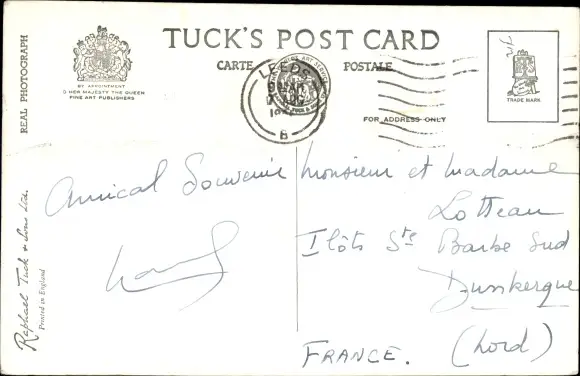 TUCK'S POST CARD
CARTE POSTALE
BY APPOINTMENT
TO HER MAJESTY THE QUEEN
FINE ART PUBLISHERS
REAL PHOTOGRAPH
LEEDS
B
FOR ADDRESS ONLY
TRADE MARK
Amical Souvenir
Monsieur et Madame
Lotteau
Ilôts Ste Barbe Sud
Dunkerque
(Nord)
FRANCE.
Raphael Tuck & Sons Ltd.
Printed in England